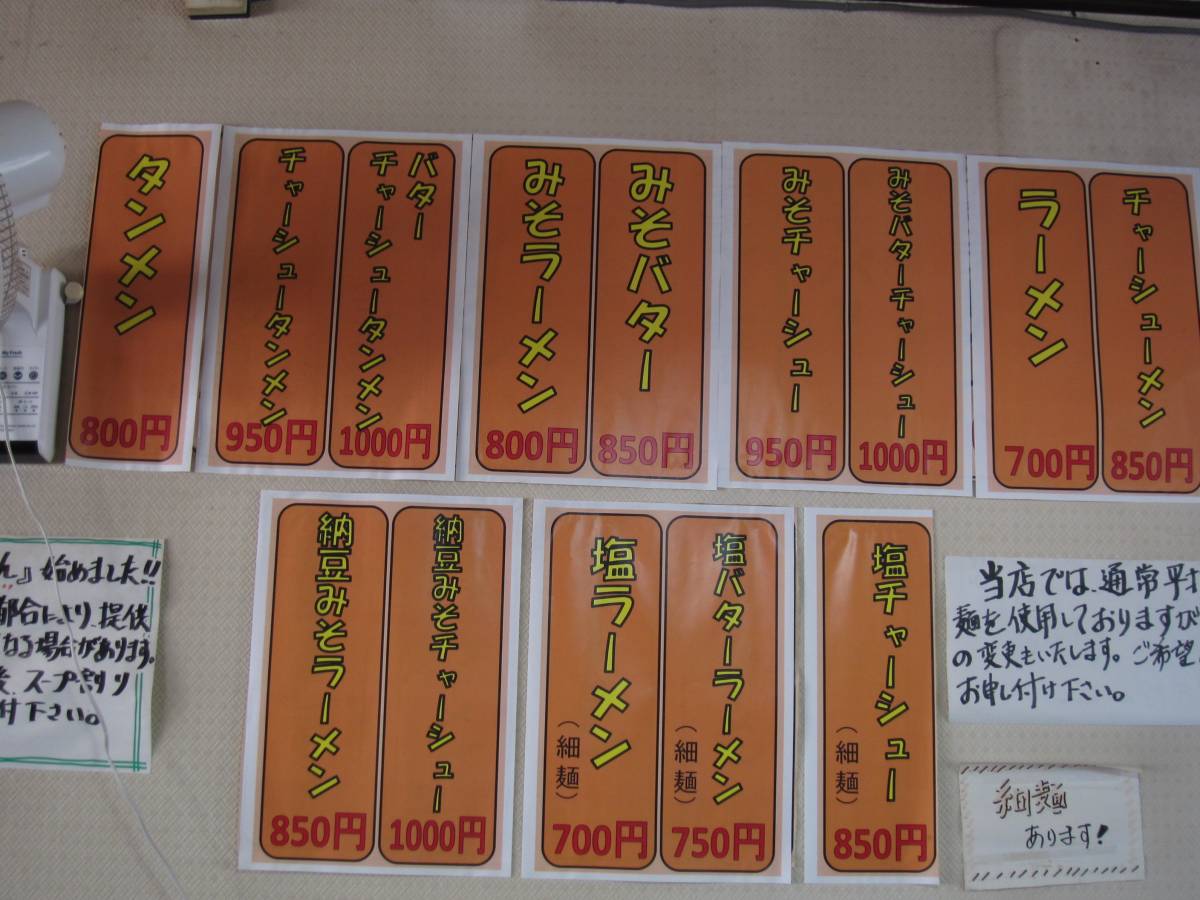 タンメン
800円
チャーシュータンメン
950円
バター
チャーシュータンメン
1000円
みそラーメン
800円
みそバター
850円
みそチャーシュー
950円
みそバターチャーシュー
1000円
ラーメン
700円
チャーシューメン
850円
納豆みそラーメン
850円
納豆みそチャーシュー
1000円
塩ラーメン
(細麺)
700円
塩バターラーメン
(細麺)
750円
塩チャーシュー
(細麺)
850円
ん』始めました!!
都合により、提供
なる場合があります。
スープ割り
付下さい。
当店では、通常平打
麺を使用しておりますが
の変更もいたします。ご希望
お申し付け下さい。
細麺
あります!